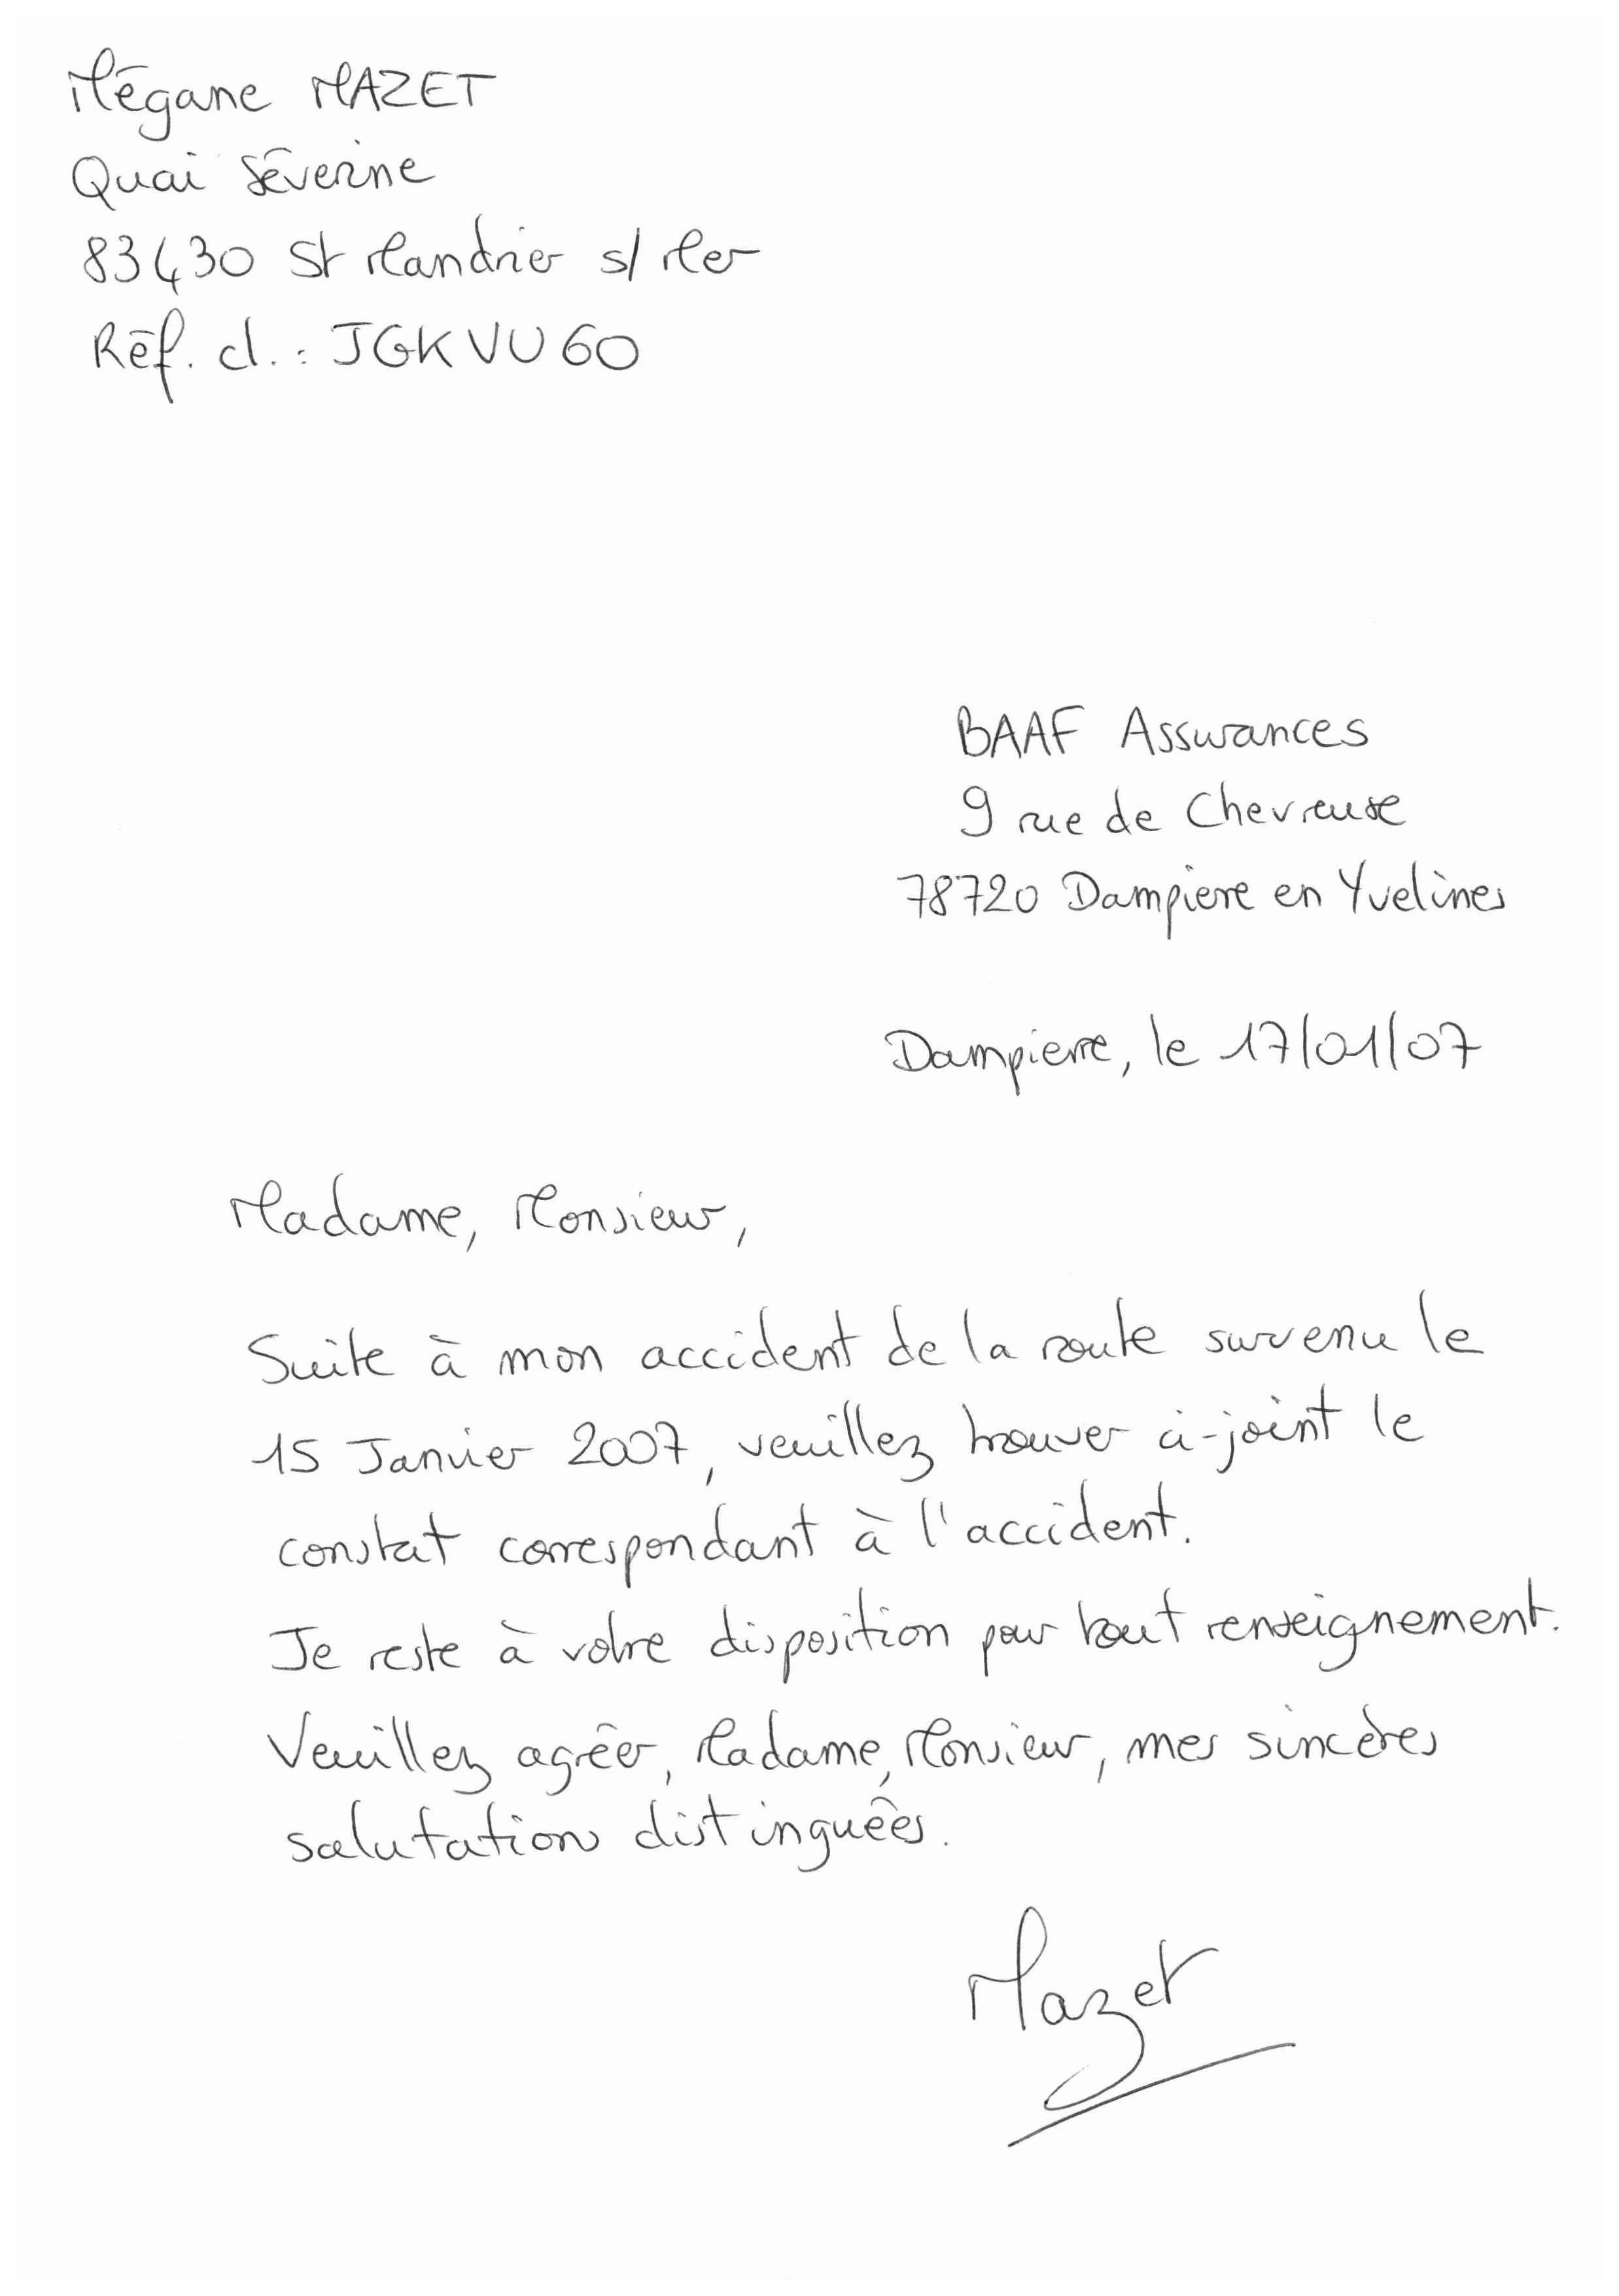 Mégane MAZET
Quai Séverine
83430 St Mandrier s/ Mer
Réf. cl. : JGKVU60
BAAF Assurances
9 rue de Chevreuse
78720 Dampierre en Yvelines
Dampierre, le 17/01/07
Madame, Monsieur,
Suite à mon accident de la route survenu le
15 Janvier 2007, veuillez trouver ci-joint le
constat correspondant à l'accident.
Je reste à votre disposition pour tout renseignement.
Veuillez agréer, Madame, Monsieur, mes sincères
salutations distinguées.
Mazet